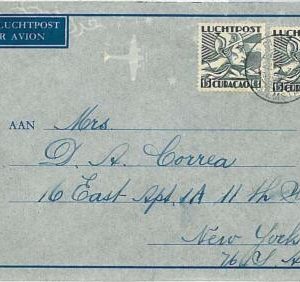 LUCHTPOST
AVION
LUCHTPOST
LUCHTPOST
15 CURACAO
15
AAN
Mrs.
D. A. Correa
16 East Apt. 1A 11 th
New York
U.S.A